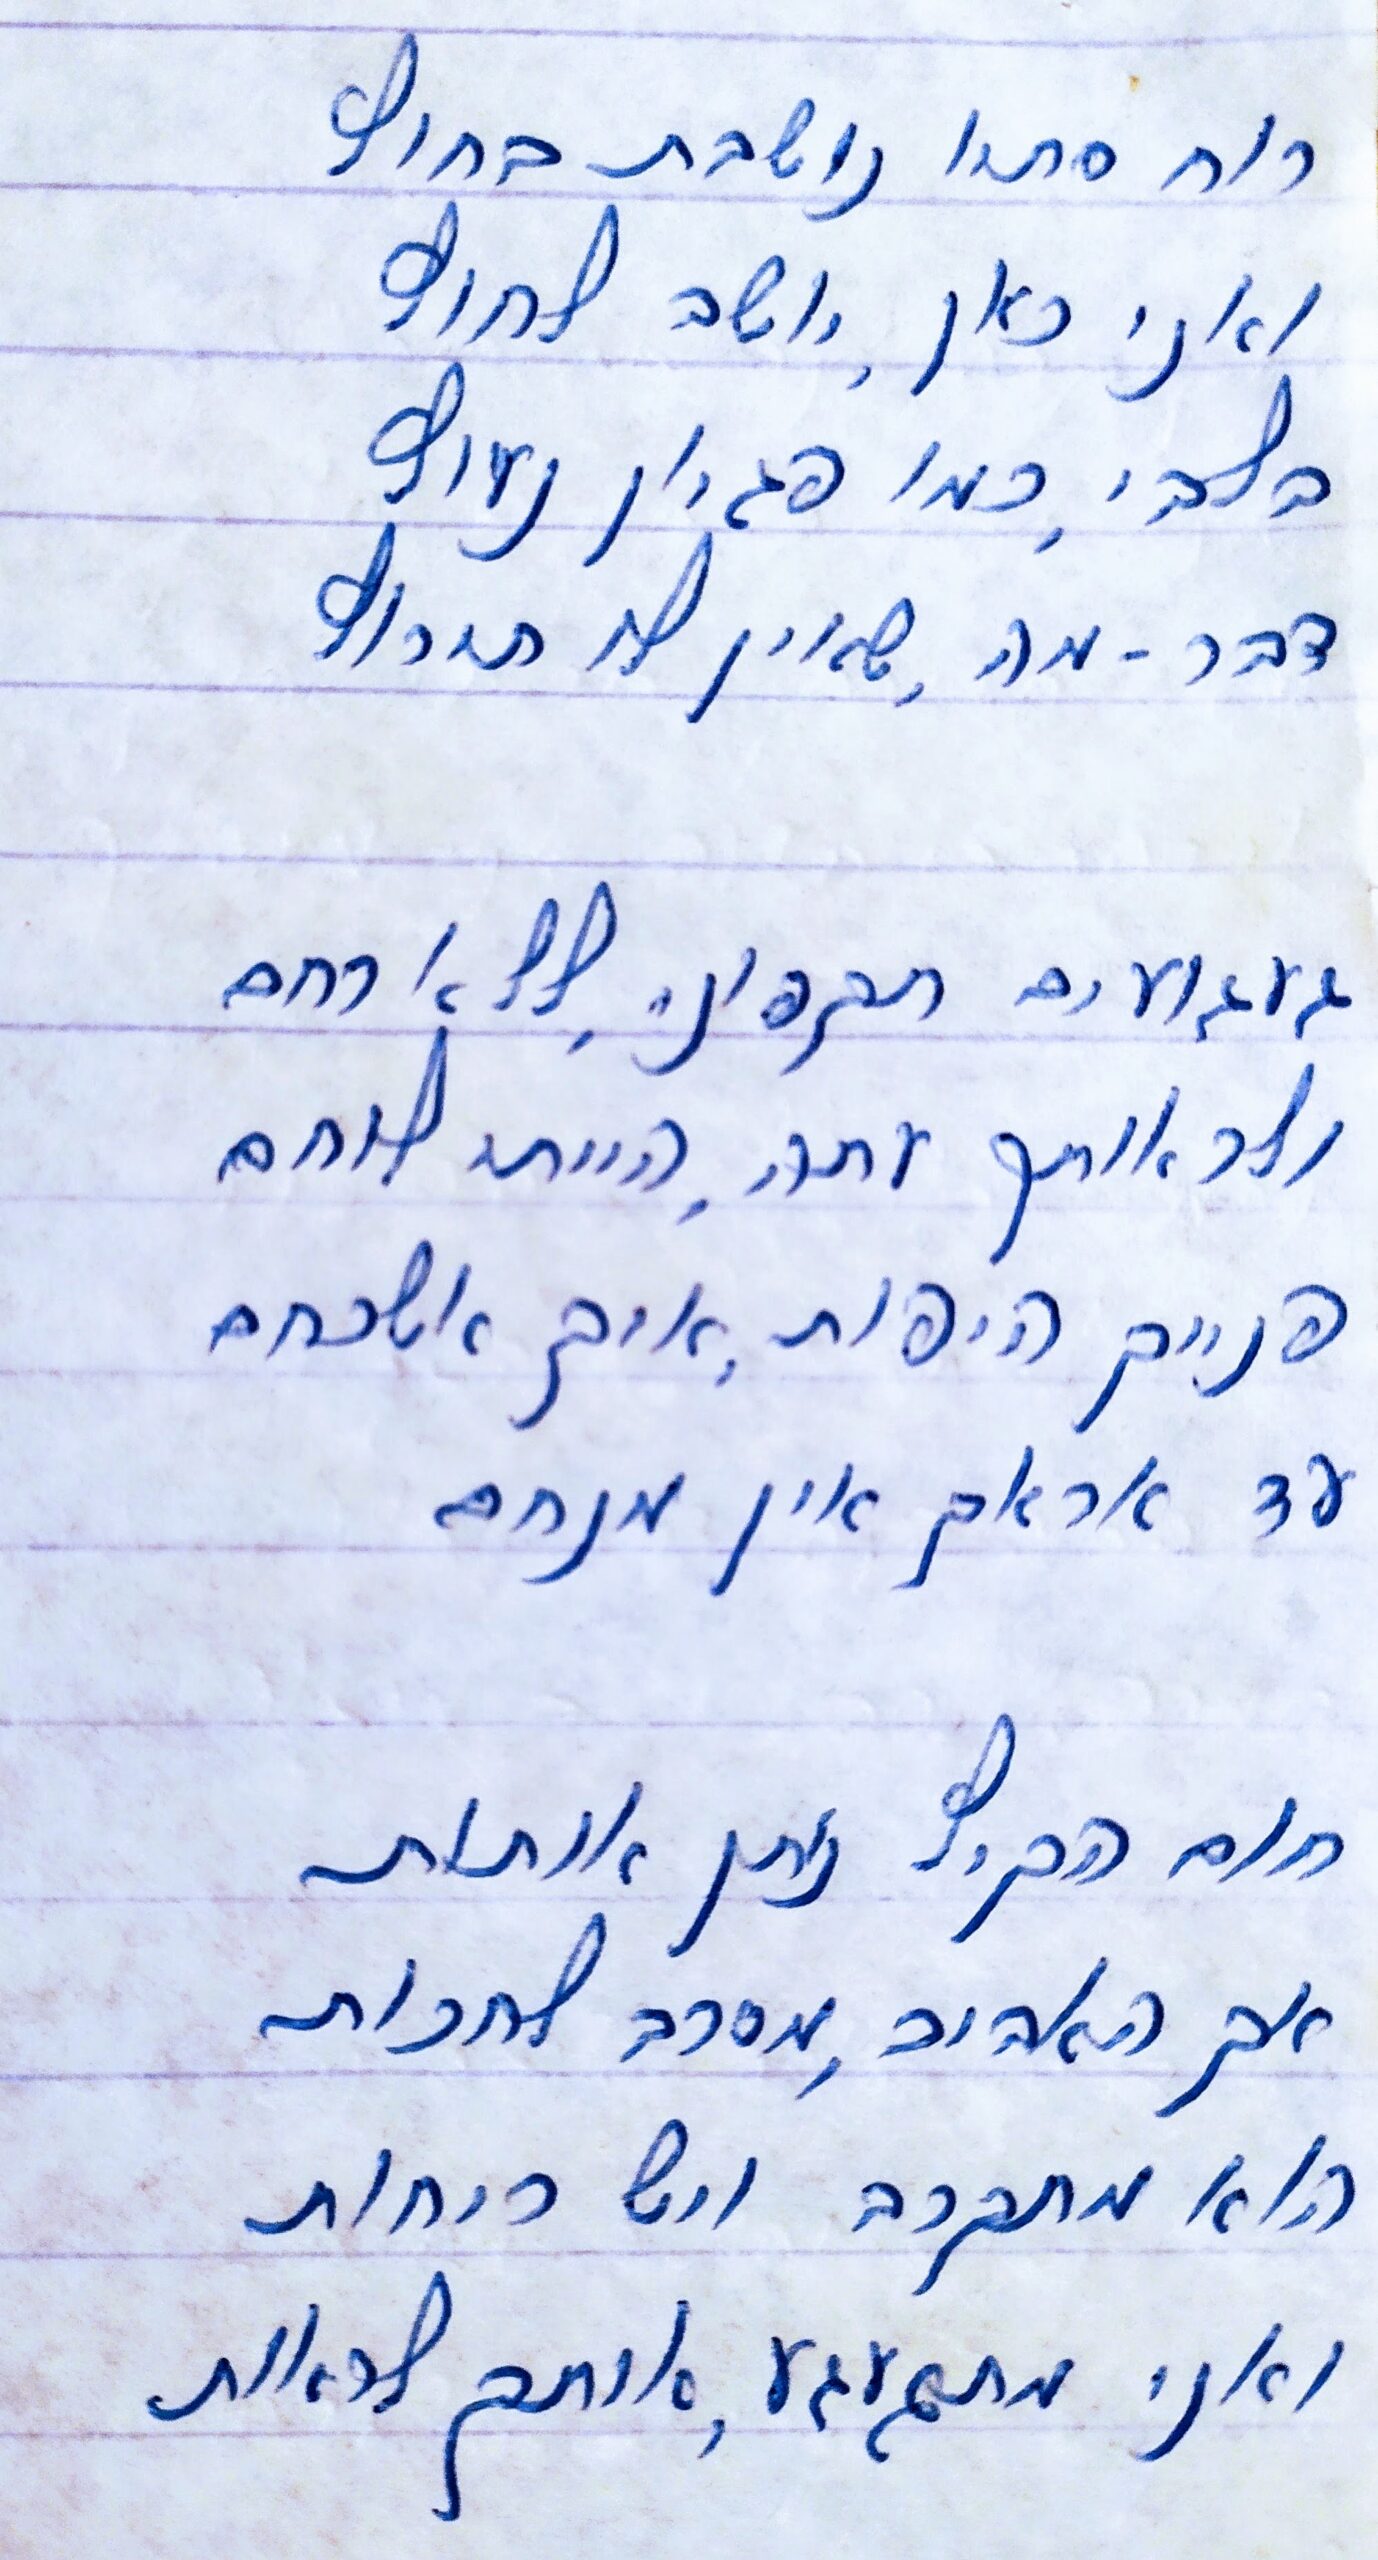 רוח סתיו נושבת בחוץ
ואני כאן, יושב לחוץ
בלבי, כמו פגיון נעוץ
דבר-מה, שאין לו תירוץ
געגועים תקפוני, ללא רחם
ולראותך עתה, הייתי לוחם
פנייך היפות, איך אשכחם
עד אראך אין מנחם
חום הקיץ נותן אותות
אך האביב, מסרב לחכות
הוא מתקרב ויש ריחות
ואני מתגעגע, אותך לראות